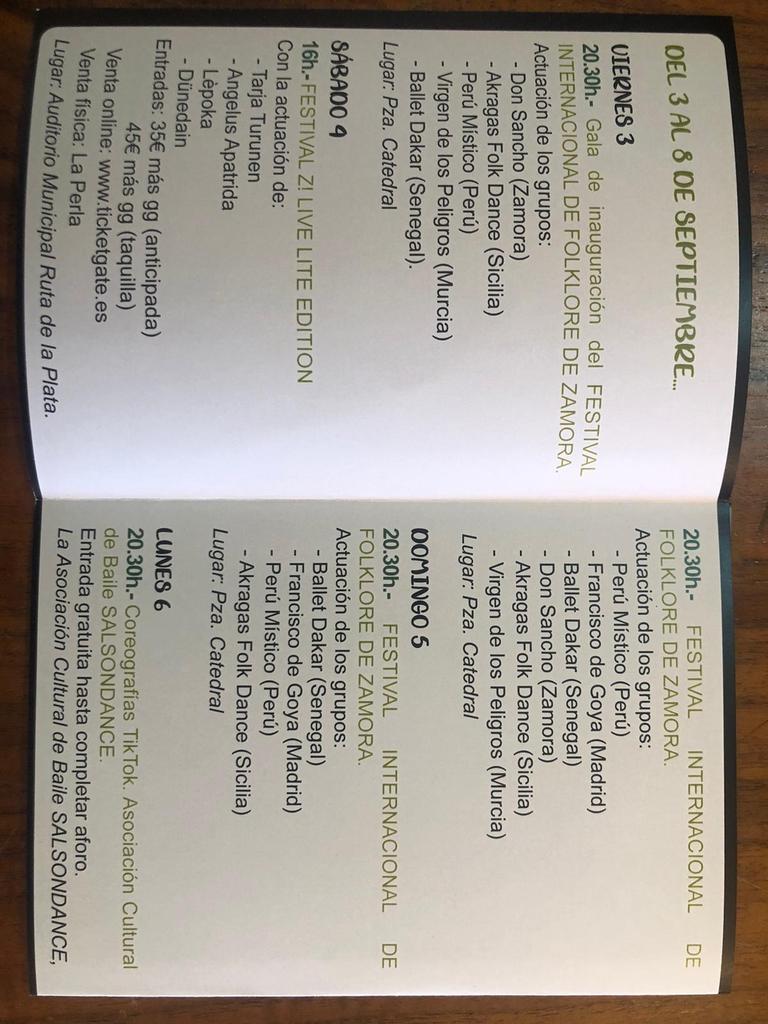 DEL 3 AL 8 DE SEPTIEMBRE...
VIERNES 3
20.30h.- Gala de inauguración del FESTIVAL
INTERNACIONAL DE FOLKLORE DE ZAMORA.
Actuación de los grupos:
- Don Sancho (Zamora)
- Akragas Folk Dance (Sicilia)
- Perú Místico (Perú)
- Virgen de los Peligros (Murcia)
- Ballet Dakar (Senegal).
Lugar: Pza. Catedral
SÁBADO 4
16h.- FESTIVAL Z! LIVE LITE EDITION
Con la actuación de:
- Tarja Turunen
- Angelus Apatrida
- Lèpoka
- Dünedain
Entradas: 35€ más gg (anticipada)
45€ más gg (taquilla)
Venta online: www.ticketgate.es
Venta física: La Perla
Lugar: Auditorio Municipal Ruta de la Plata.
20.30h.- FESTIVAL INTERNACIONAL DE
FOLKLORE DE ZAMORA.
Actuación de los grupos:
- Perú Místico (Perú)
- Francisco de Goya (Madrid)
- Ballet Dakar (Senegal)
- Don Sancho (Zamora)
- Akragas Folk Dance (Sicilia)
- Virgen de los Peligros (Murcia)
Lugar: Pza. Catedral
DOMINGO 5
20.30h.- FESTIVAL INTERNACIONAL DE
FOLKLORE DE ZAMORA.
Actuación de los grupos:
- Ballet Dakar (Senegal)
- Francisco de Goya (Madrid)
- Perú Místico (Perú)
- Akragas Folk Dance (Sicilia)
Lugar: Pza. Catedral
LUNES 6
20.30h.- Coreografías TikTok. Asociación Cultural
de Baile SALSONDANCE.
Entrada gratuita hasta completar aforo.
La Asociación Cultural de Baile SALSONDANCE,